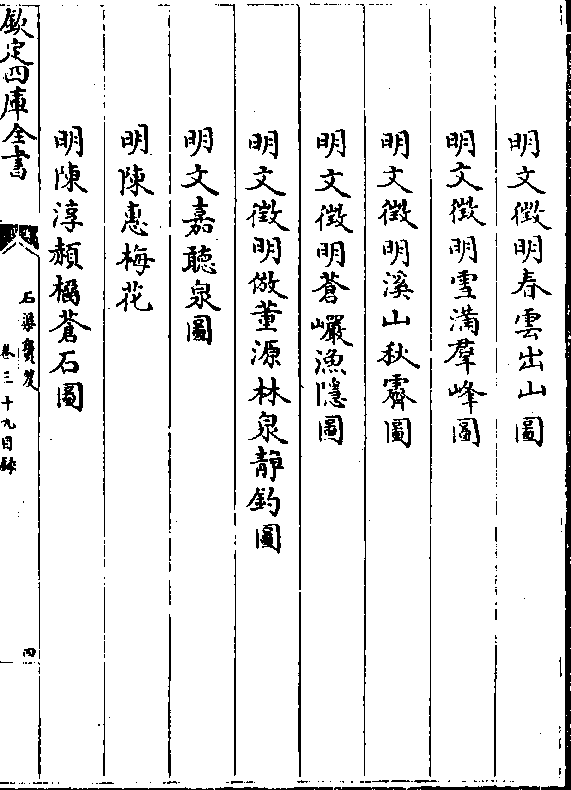 明文徵明春雲出山圖
明文徵明雪滿羣峰圖
明文徵明溪山秋霽圖
明文徵明蒼巗漁隱圖
明文徵明倣董源林泉靜釣圖
明文嘉聽泉圖
明陳惠梅花
明陳淳頳桐蒼石圖
欽定四庫全書
石渠寶笈
卷三十九目録
四